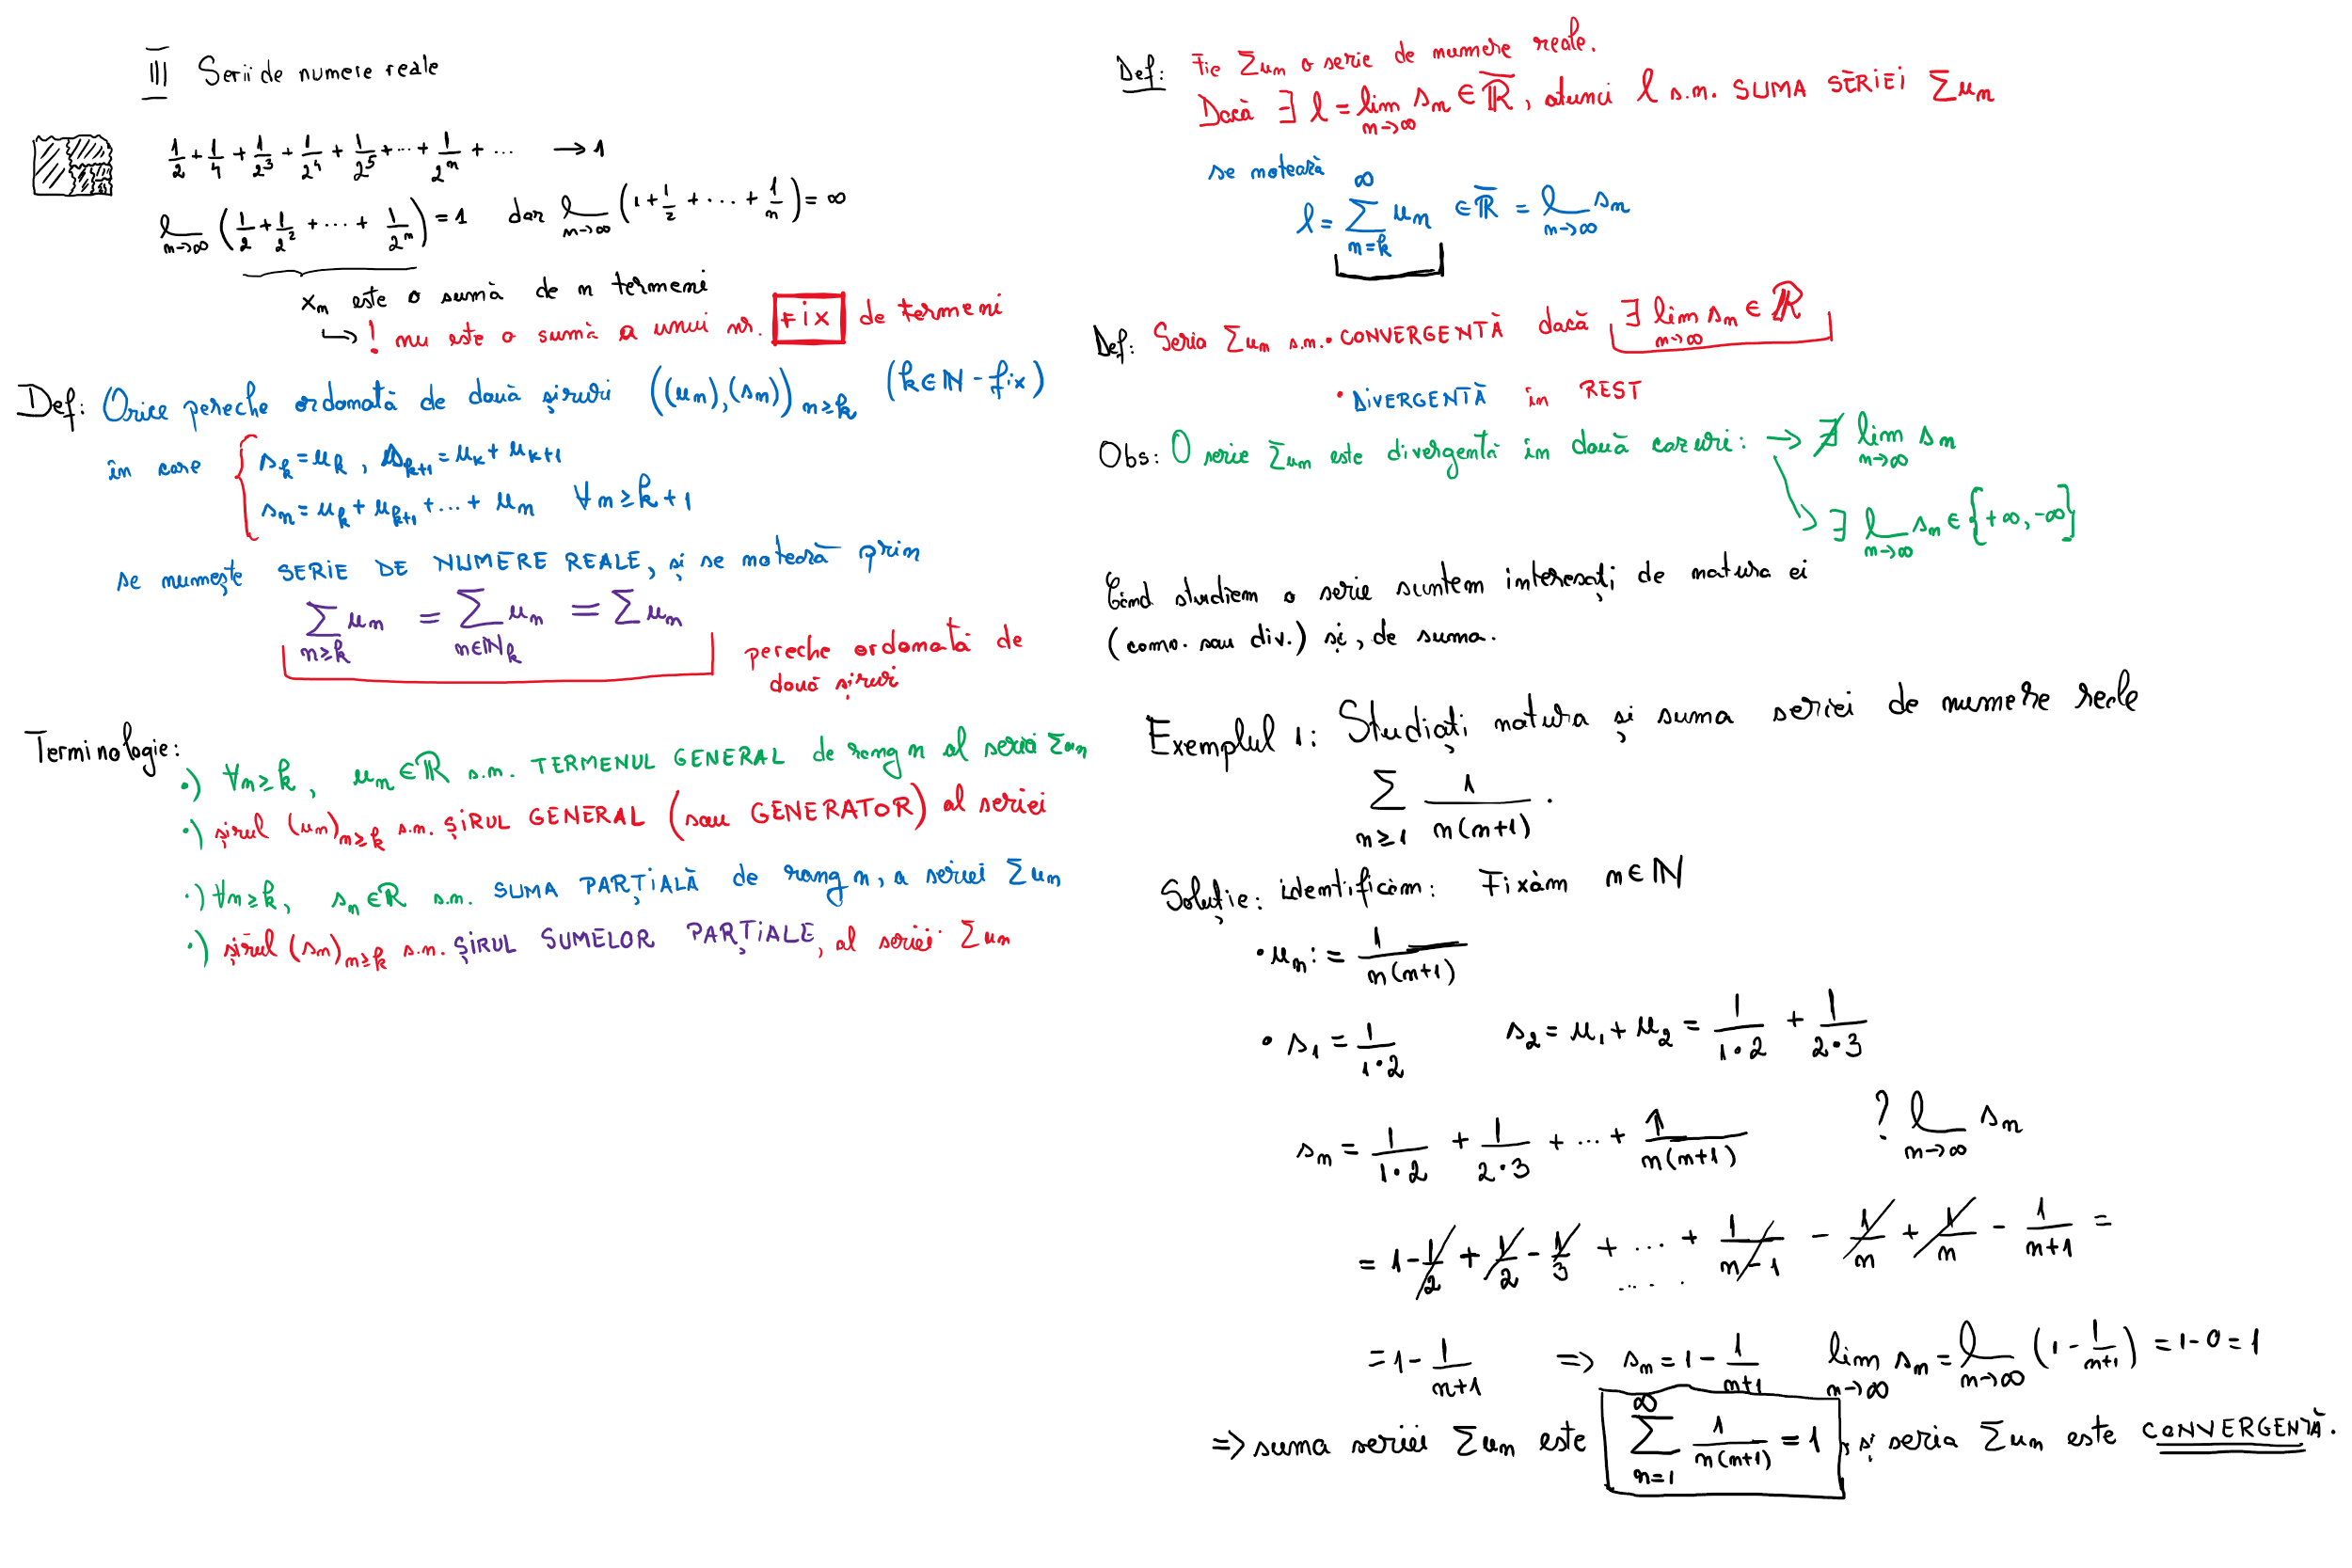 III Serii de numere reale
1/2 + 1/4 + 1/2³ + 1/2⁴ + 1/2⁵ + ... + 1/2ⁿ + ... → 1
lim n→∞ (1/2 + 1/2² + ... + 1/2ⁿ) = 1 dar lim n→∞ (1 + 1/2 + ... + 1/n) = ∞
xₙ este o sumă de n termeni
↳ ! nu este o sumă a unui nr. FIX de termeni
Def: Orice pereche ordonată de două șiruri ((uₙ),(sₙ)) n≥k (k∈ℕ - fix)
în care { s_k = u_k , s_{k+1} = u_k + u_{k+1}
sₙ = u_k + u_{k+1} + ... + uₙ ∀n≥k+1
se numește SERIE DE NUMERE REALE, și se notează prin
∑ n≥k uₙ = ∑ n∈ℕ_k uₙ = ∑uₙ
pereche ordonată de
două șiruri
Terminologie:
•) ∀n≥k, uₙ∈ℝ s.n. TERMENUL GENERAL de rang n al seriei ∑uₙ
•) șirul (uₙ) n≥k s.n. ȘIRUL GENERAL (sau GENERATOR) al seriei
•) ∀n≥k, sₙ∈ℝ s.n. SUMA PARȚIALĂ de rang n, a seriei ∑uₙ
•) șirul (sₙ) n≥k s.n. ȘIRUL SUMELOR PARȚIALE, al seriei ∑uₙ
Def: Fie ∑uₙ o serie de numere reale.
Dacă ∃ l = lim n→∞ sₙ ∈ ℝ̅, atunci l s.n. SUMA SERIEI ∑uₙ
se notează
l = ∑ n=k ∞ uₙ ∈ ℝ̅ = lim n→∞ sₙ
Def: Seria ∑uₙ s.n. • CONVERGENTĂ dacă ∃ lim n→∞ sₙ ∈ ℝ
• DIVERGENTĂ în REST
Obs: O serie ∑uₙ este divergentă în două cazuri: → ∄ lim n→∞ sₙ
↘ ∃ lim n→∞ sₙ ∈ {+∞, -∞}
Când studiem o serie suntem interesați de natura ei
(conv. sau div.) și, de suma.
Exemplul 1: Studiați natura și suma seriei de numere reale
∑ n≥1 1/n(n+1) .
Soluție: identificăm: Fixăm n∈ℕ
• uₙ := 1/n(n+1)
• s₁ = 1/1•2 s₂ = u₁ + u₂ = 1/1•2 + 1/2•3
sₙ = 1/1•2 + 1/2•3 + ... + 1/n(n+1) ? lim n→∞ sₙ
= 1 - 1/2 + 1/2 - 1/3 + ... + 1/n-1 - 1/n + 1/n - 1/n+1 =
= 1 - 1/n+1 => sₙ = 1 - 1/n+1 lim n→∞ sₙ = lim n→∞ (1 - 1/n+1) = 1 - 0 = 1
=> suma seriei ∑uₙ este ∑ n=1 ∞ 1/n(n+1) = 1, și seria ∑uₙ este CONVERGENTĂ.